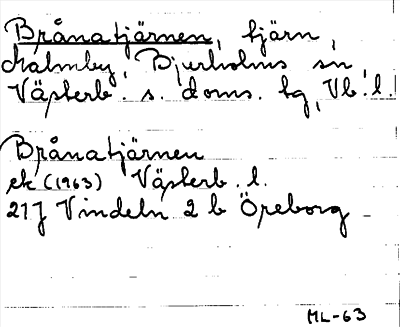 Brånatjärnen, tjärn,
Malmby, Bjurholms sn,
Västerb. s. doms. tg, Vb. l.
Brånatjärnen
ek (1963) Västerb. l.
21J Vindeln 2 b Öreborg
ML-63